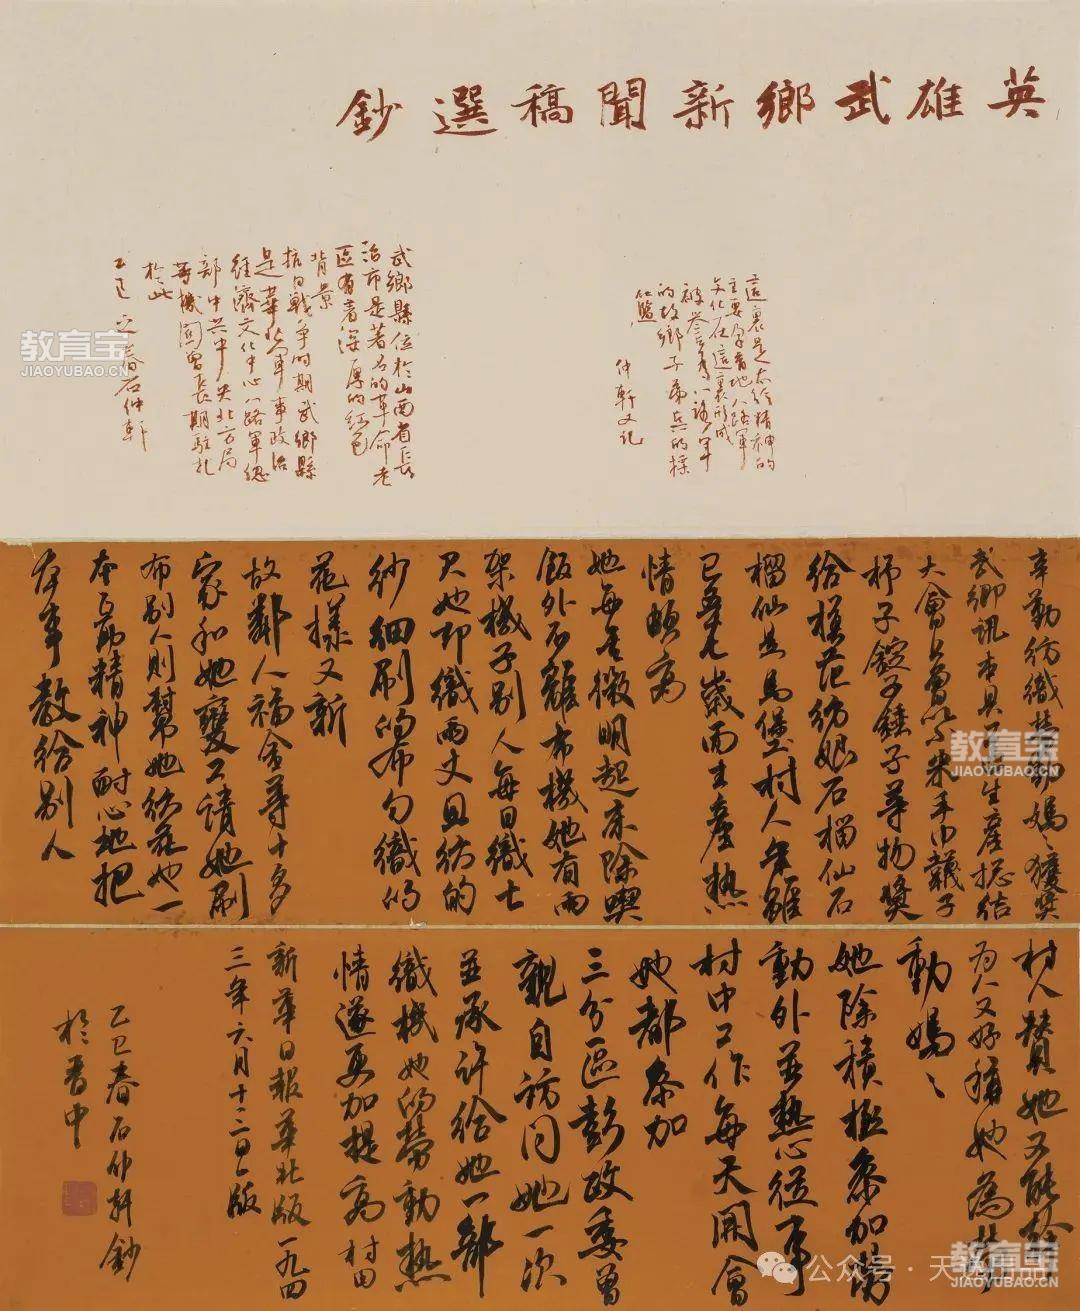 英雄武鄉新聞稿選鈔
這裏是太行精神的
主要孕育地八路軍
文化在這裏形成
被譽為八路軍
的故鄉子弟兵的搖
籃
仲軒又記
武鄉縣位於山西省長
治市是著名的革命老
區有著深厚的紅色
背景
抗日戰爭時期武鄉縣
是華北軍事政治
經濟文化中心八路軍總
部中共中央北方局
等機關曾長期駐扎
於此
乙巳之春石仲軒
辛勤紡織勞動媽〻獲獎
武鄉訊本縣生產總結
大會上曾以米手巾襪子
杼子錠子錘子等物獎
給模范紡娘石榴仙石
榴仙是馬堡村人年雖
已五七歲而生產熱
情頗高
她每天微明起床除喫
飯外不離布機她有兩
架機子別人每日織七
尺她卻織兩丈且紡的
紗細刷的布勻織的
花樣又新
故鄰人福會等十多
家和她變工請她刷
布別人則幫她紡花她一
本互助精神耐心地把
本事教給別人
村人贊她又能幹
為人又好稱她為勞
動媽〻
她除積極參加勞
動外並熱心從事
村中工作每天開會
她都參加
三分區彭政委曾
親自訪問她一次
並承許給她一部
織機她的勞動熱
情遂更加提高 村田
新華日報華北版一九四
三年六月十二日版
乙巳春石仲軒鈔
於晉中
教育宝
JIAOYUBAO.CN
教育宝
JIAOYUBAO.CN
教育宝
JIAOYUBAO.CN
教育宝
JIAOYUBAO.CN
公众号